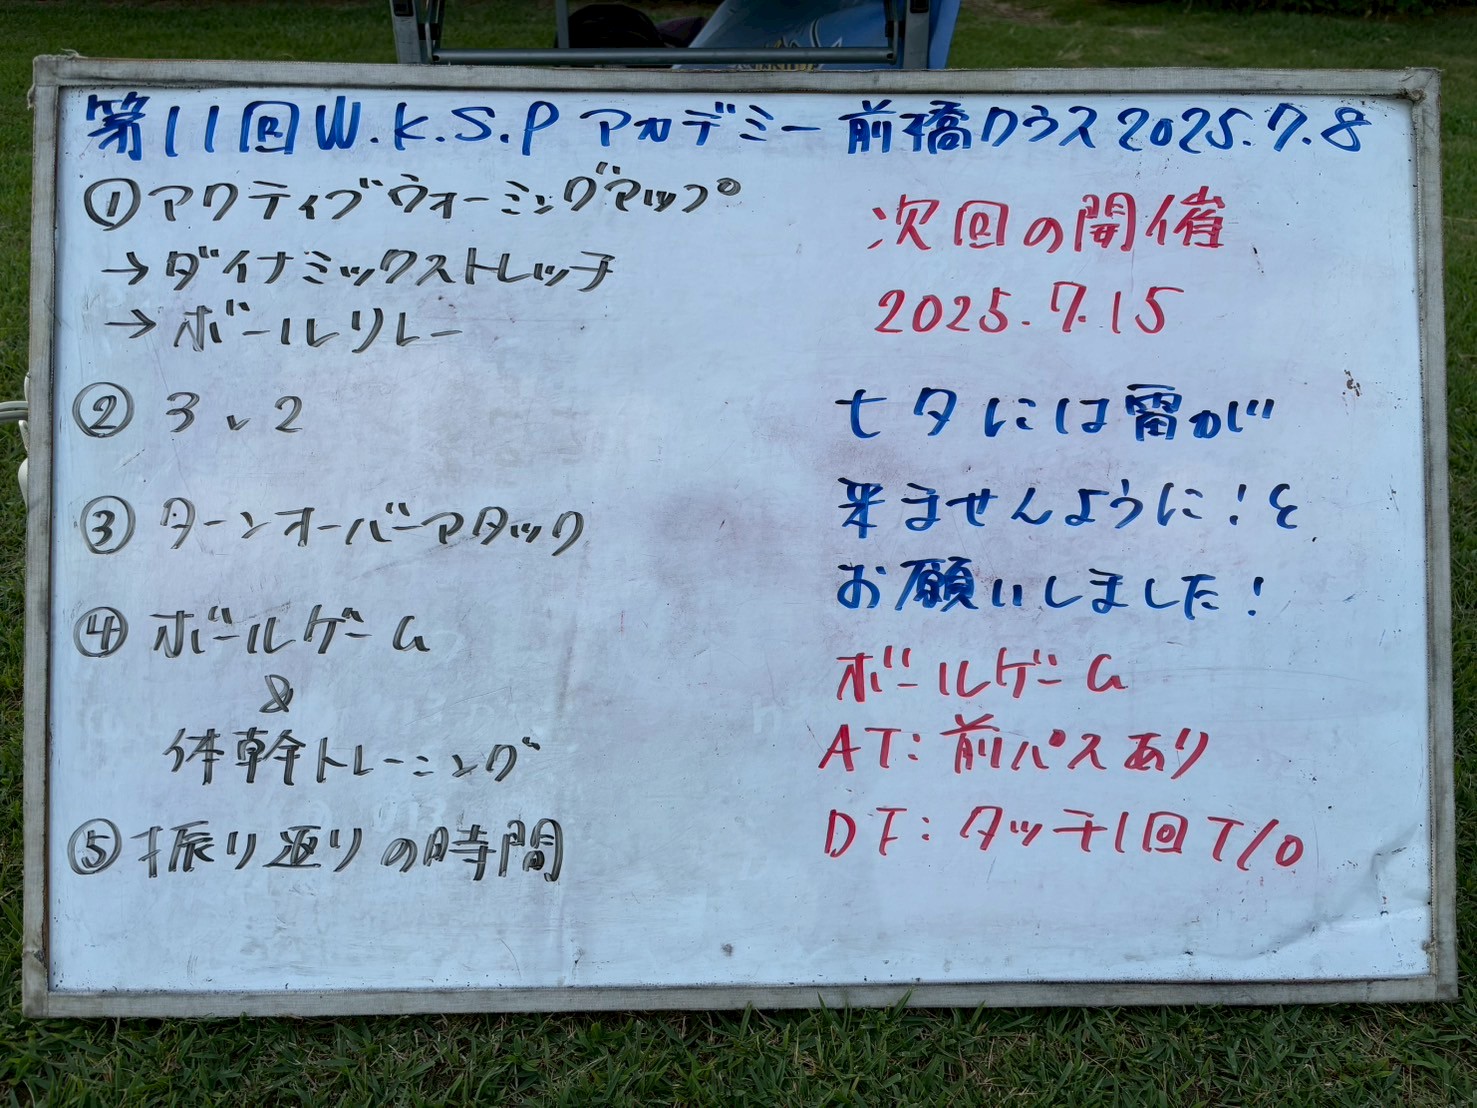 第11回W.K.S.Pアカデミー前橋クラス2025.7.8
①アクティブウォーミングアップ
→ダイナミックストレッチ
→ボールリレー
② 3v2
③ ターンオーバーアタック
④ ボールゲーム
&
体幹トレーニング
⑤振り返りの時間
次回の開催
2025.7.15
七夕には雷が
来ませんように！と
お願いしました！
ボールゲーム
AT:前パスあり
DF:タッチ1回T/O